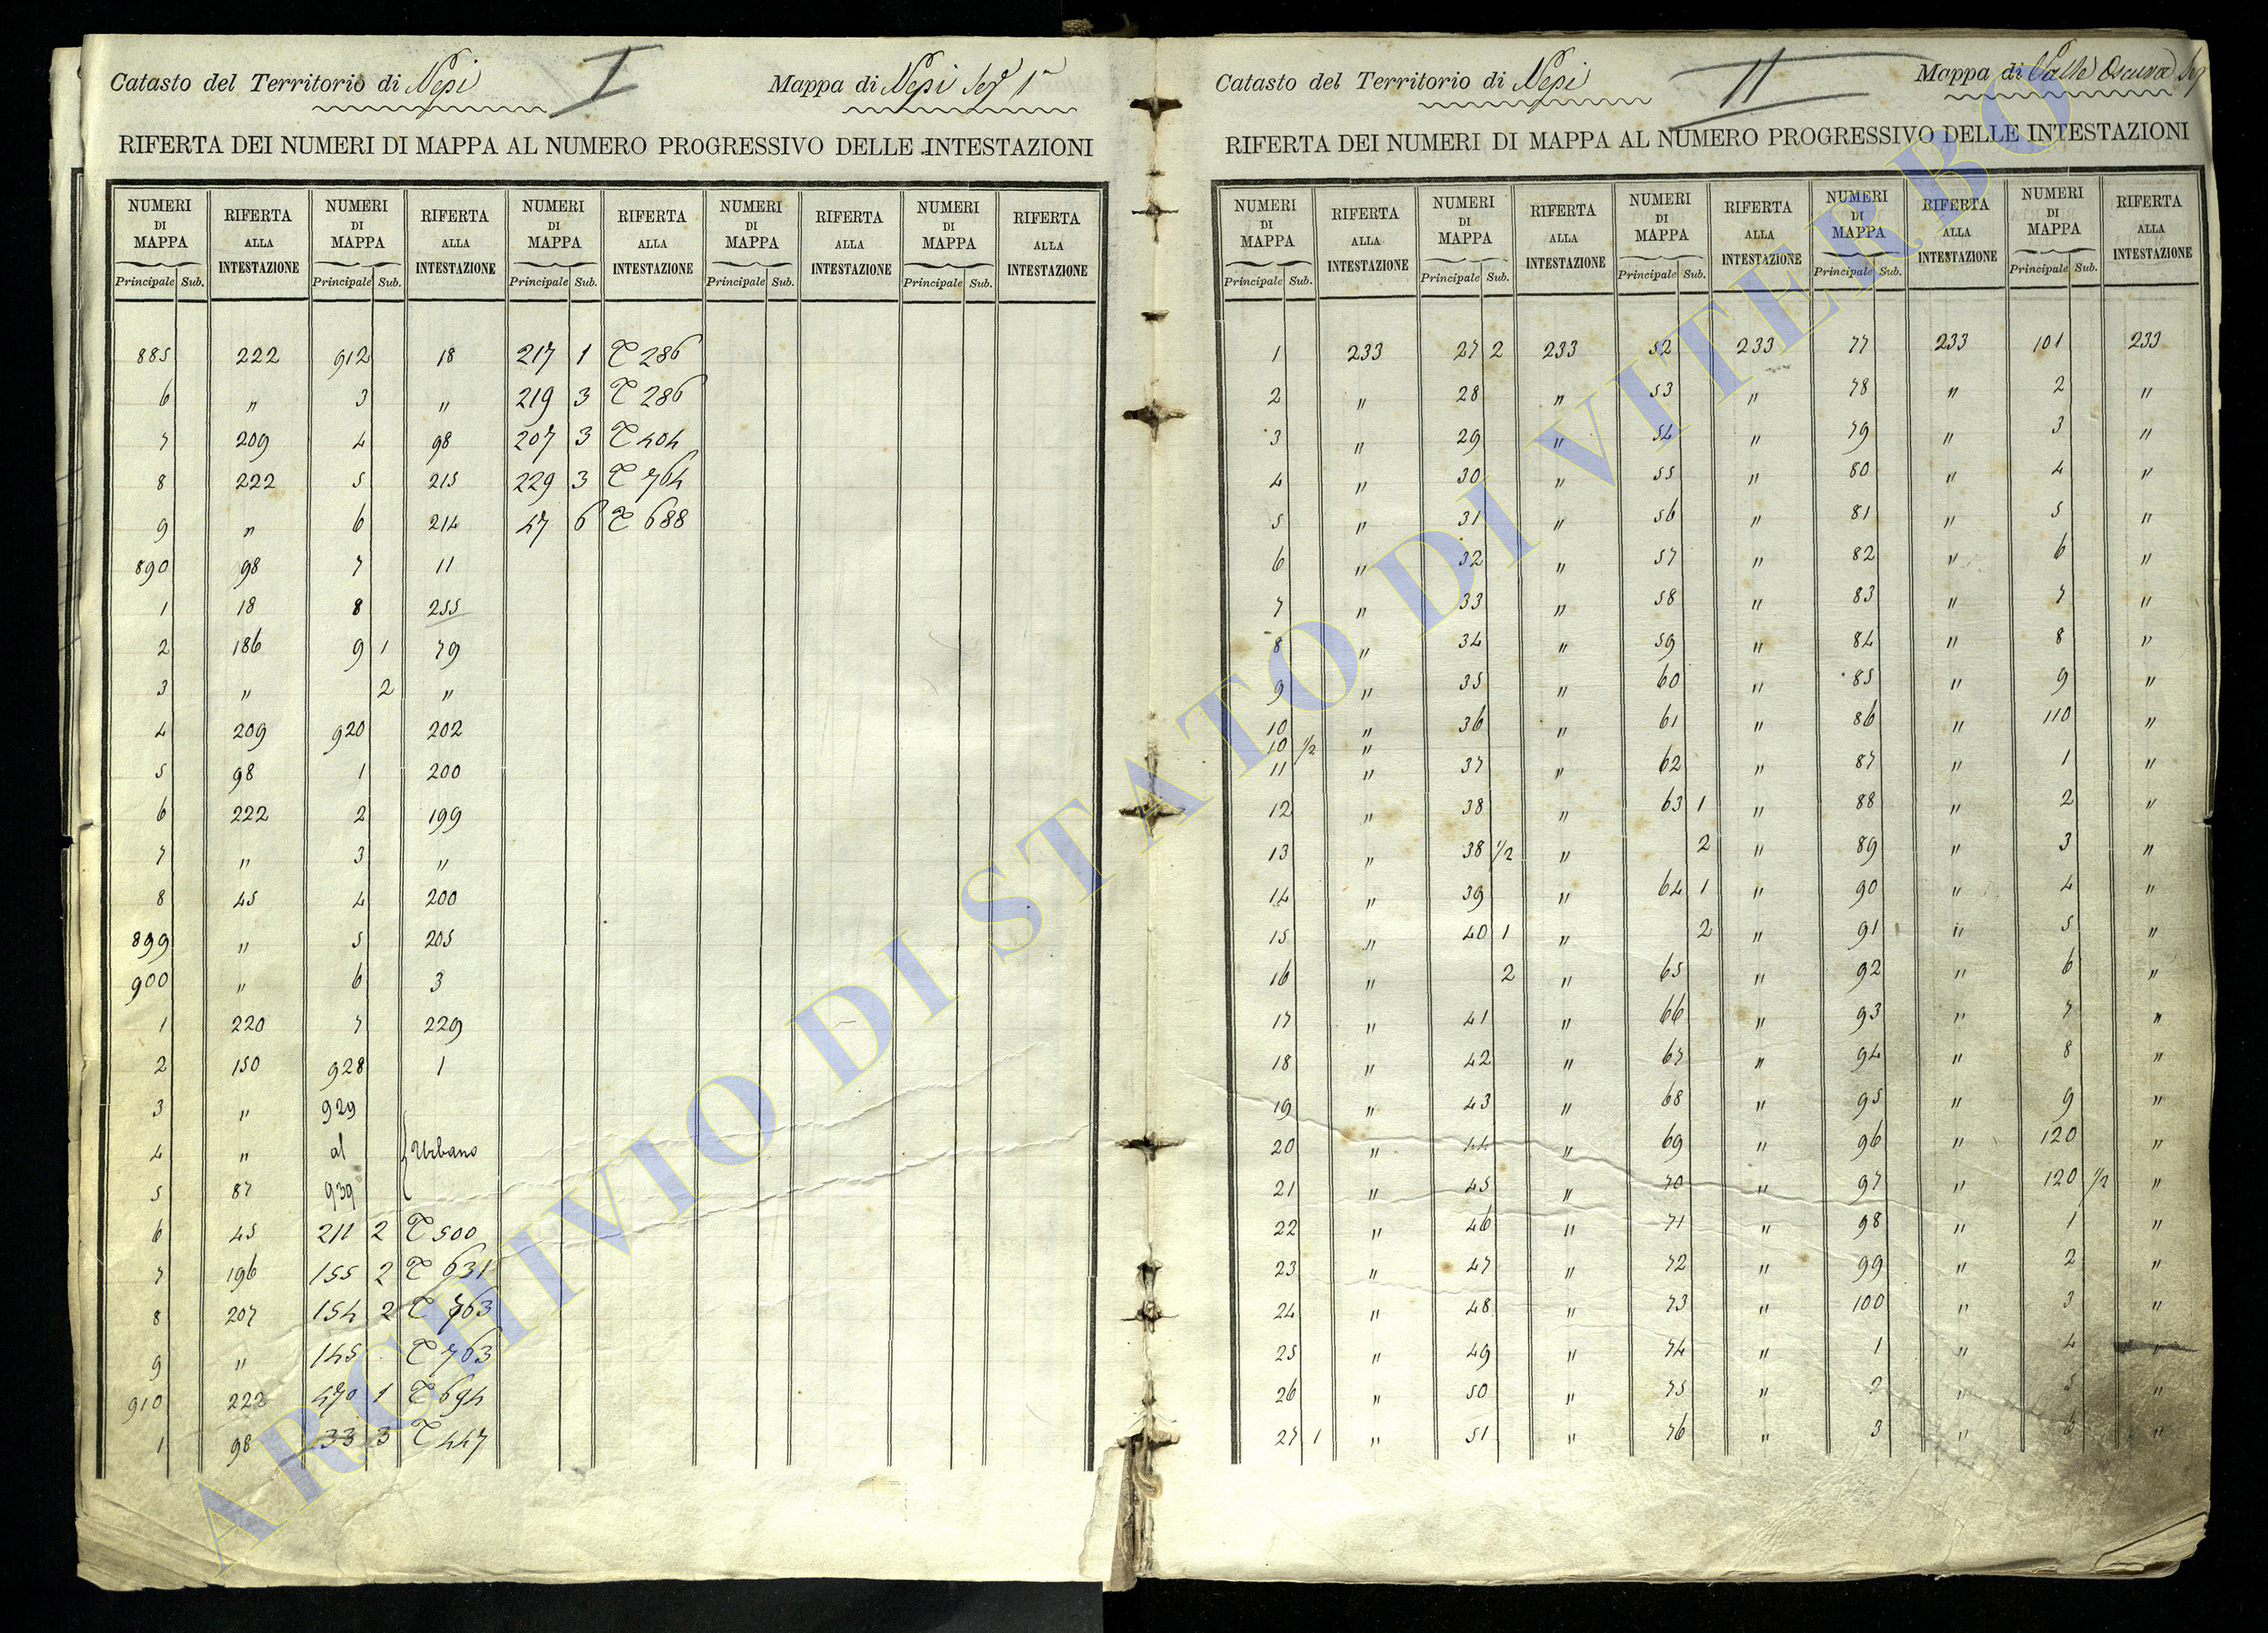 Catasto del Territorio di Nepi I Mappa di Nepi Sez. 1a
RIFERTA DEI NUMERI DI MAPPA AL NUMERO PROGRESSIVO DELLE INTESTAZIONI
NUMERI DI MAPPA RIFERTA ALLA INTESTAZIONE NUMERI DI MAPPA RIFERTA ALLA INTESTAZIONE NUMERI DI MAPPA RIFERTA ALLA INTESTAZIONE NUMERI DI MAPPA RIFERTA ALLA INTESTAZIONE NUMERI DI MAPPA RIFERTA ALLA INTESTAZIONE
Principale Sub. Principale Sub. Principale Sub. Principale Sub. Principale Sub.
885 222 912 18 217 1 T 286
6 " 3 " 219 3 T 286
7 209 4 98 207 3 T 404
8 222 5 215 229 3 T 764
9 " 6 214 47 6 T 688
890 98 7 11
1 18 8 255
2 186 9 1 79
3 " 2 "
4 209 920 202
5 98 1 200
6 222 2 199
7 " 3 "
8 45 4 200
899 " 5 205
900 " 6 3
1 220 7 229
2 150 928 1
3 " 929
4 " al Urbano
5 87 939
6 45 211 2 T 500
7 196 155 2 T 631
8 207 154 2 T 763
9 " 145 T 763
910 222 470 1 T 694
1 98 33 3 T 447
Catasto del Territorio di Nepi II Mappa di Valle Oscura Sez
RIFERTA DEI NUMERI DI MAPPA AL NUMERO PROGRESSIVO DELLE INTESTAZIONI
NUMERI DI MAPPA RIFERTA ALLA INTESTAZIONE NUMERI DI MAPPA RIFERTA ALLA INTESTAZIONE NUMERI DI MAPPA RIFERTA ALLA INTESTAZIONE NUMERI DI MAPPA RIFERTA ALLA INTESTAZIONE NUMERI DI MAPPA RIFERTA ALLA INTESTAZIONE
Principale Sub. Principale Sub. Principale Sub. Principale Sub. Principale Sub.
1 233 27 2 233 52 233 77 233 101 233
2 " 28 " 53 " 78 " 2 "
3 " 29 " 54 " 79 " 3 "
4 " 30 " 55 " 80 " 4 "
5 " 31 " 56 " 81 " 5 "
6 " 32 " 57 " 82 " 6 "
7 " 33 " 58 " 83 " 7 "
8 " 34 " 59 " 84 " 8 "
9 " 35 " 60 " 85 " 9 "
10 " 36 " 61 " 86 " 110 "
10 1/2 "
11 " 37 " 62 " 87 " 1 "
12 " 38 " 63 1 " 88 " 2 "
13 " 38 1/2 " 2 " 89 " 3 "
14 " 39 " 64 1 " 90 " 4 "
15 " 40 1 " 2 " 91 " 5 "
16 " 2 " 65 " 92 " 6 "
17 " 41 " 66 " 93 " 7 "
18 " 42 " 67 " 94 " 8 "
19 " 43 " 68 " 95 " 9 "
20 " 44 " 69 " 96 " 120 "
21 " 45 " 70 " 97 " 120 1/2 "
22 " 46 " 71 " 98 " 1 "
23 " 47 " 72 " 99 " 2 "
24 " 48 " 73 " 100 " 3 "
25 " 49 " 74 " 1 " 4 "
26 " 50 " 75 " 2 " 5 "
27 1 " 51 " 76 " 3 " 6 "
ARCHIVIO DI STATO DI VITERBO